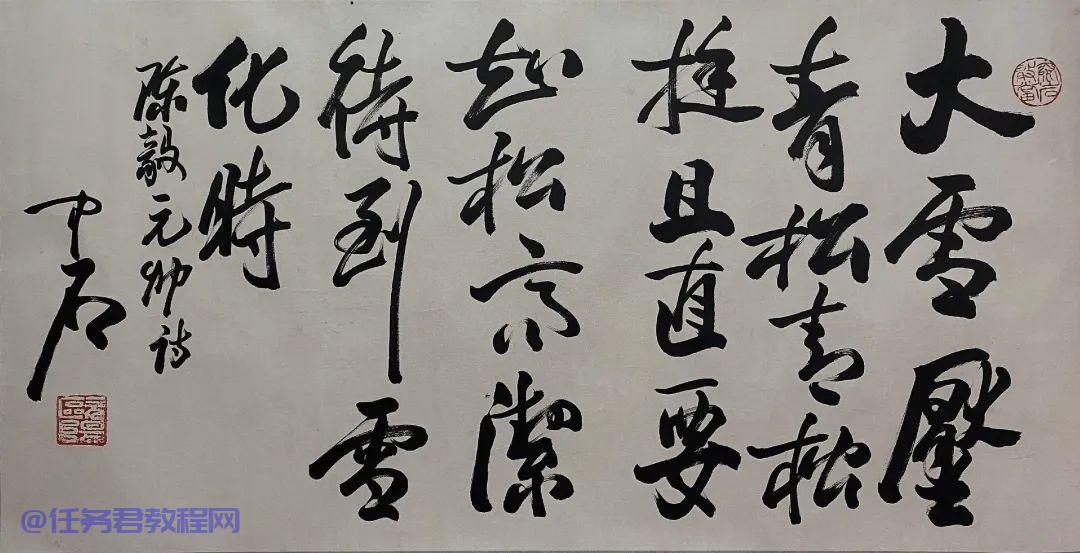 大雪壓
青松青松
挺且直要
知松高潔
待到雪
化時
陈毅元帅诗
中石
@任务君教程网